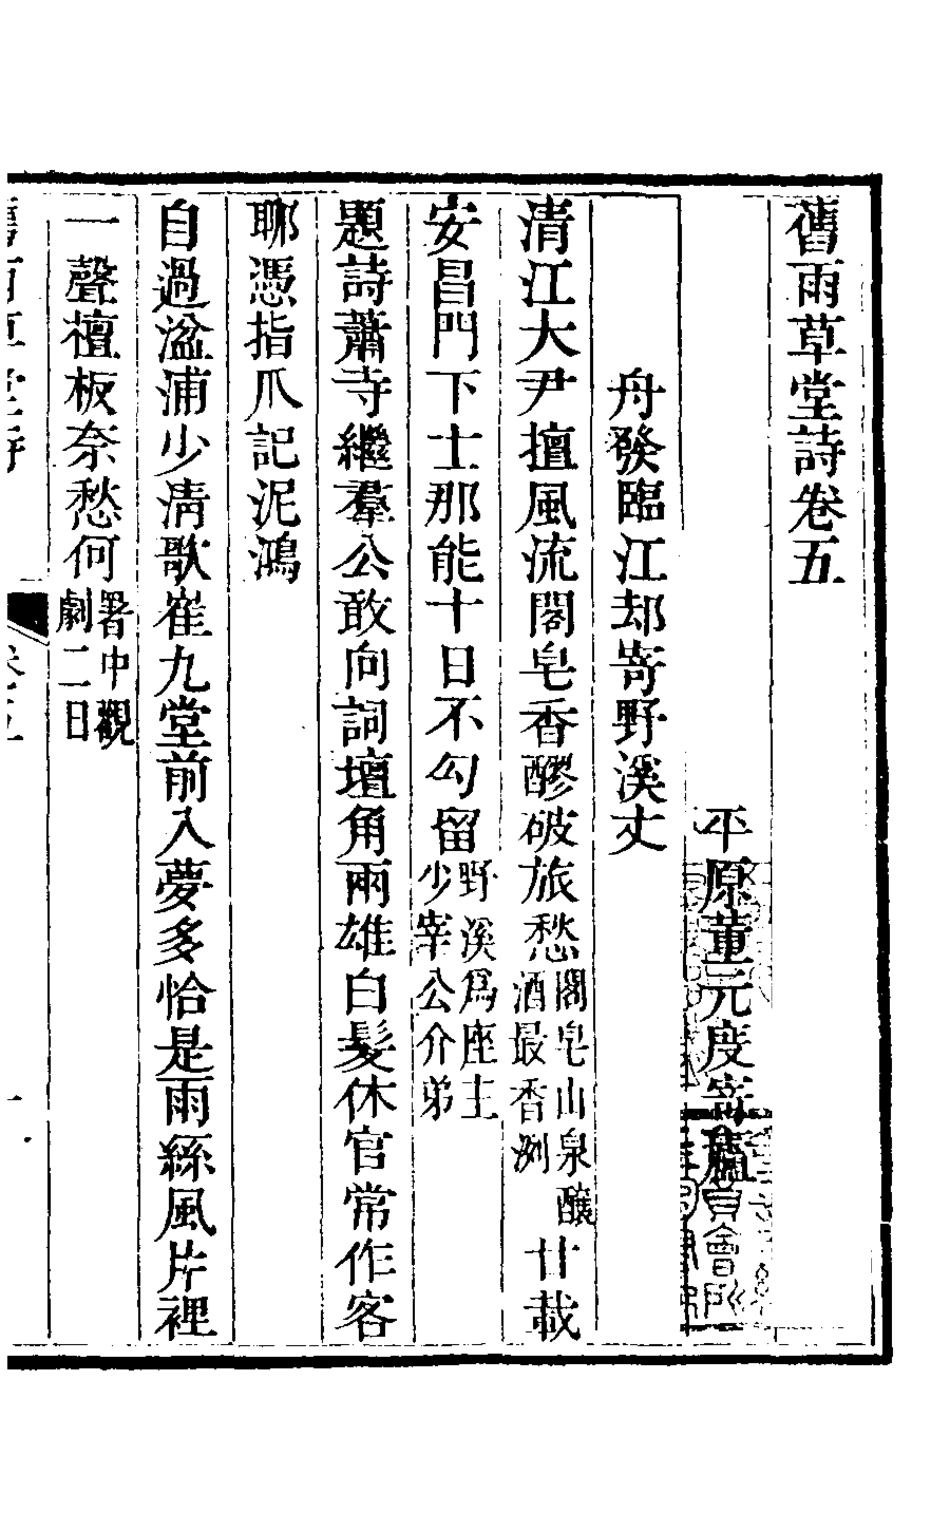 舊雨草堂詩卷五
平原董元度寄廬
舟發臨江却寄野溪丈
清江大尹擅風流閣皂香醪破旅愁閣皂山泉釀酒最香洌廿載
安昌門下士那能十日不勾留野溪爲座主少宰公介弟
題詩蕭寺繼羣公敢向詞壇角兩雄白髮休官常作客
聊憑指爪記泥鴻
自過湓浦少淸歌崔九堂前入夢多恰是雨絲風片裡
一聲檀板奈愁何署中觀劇二日